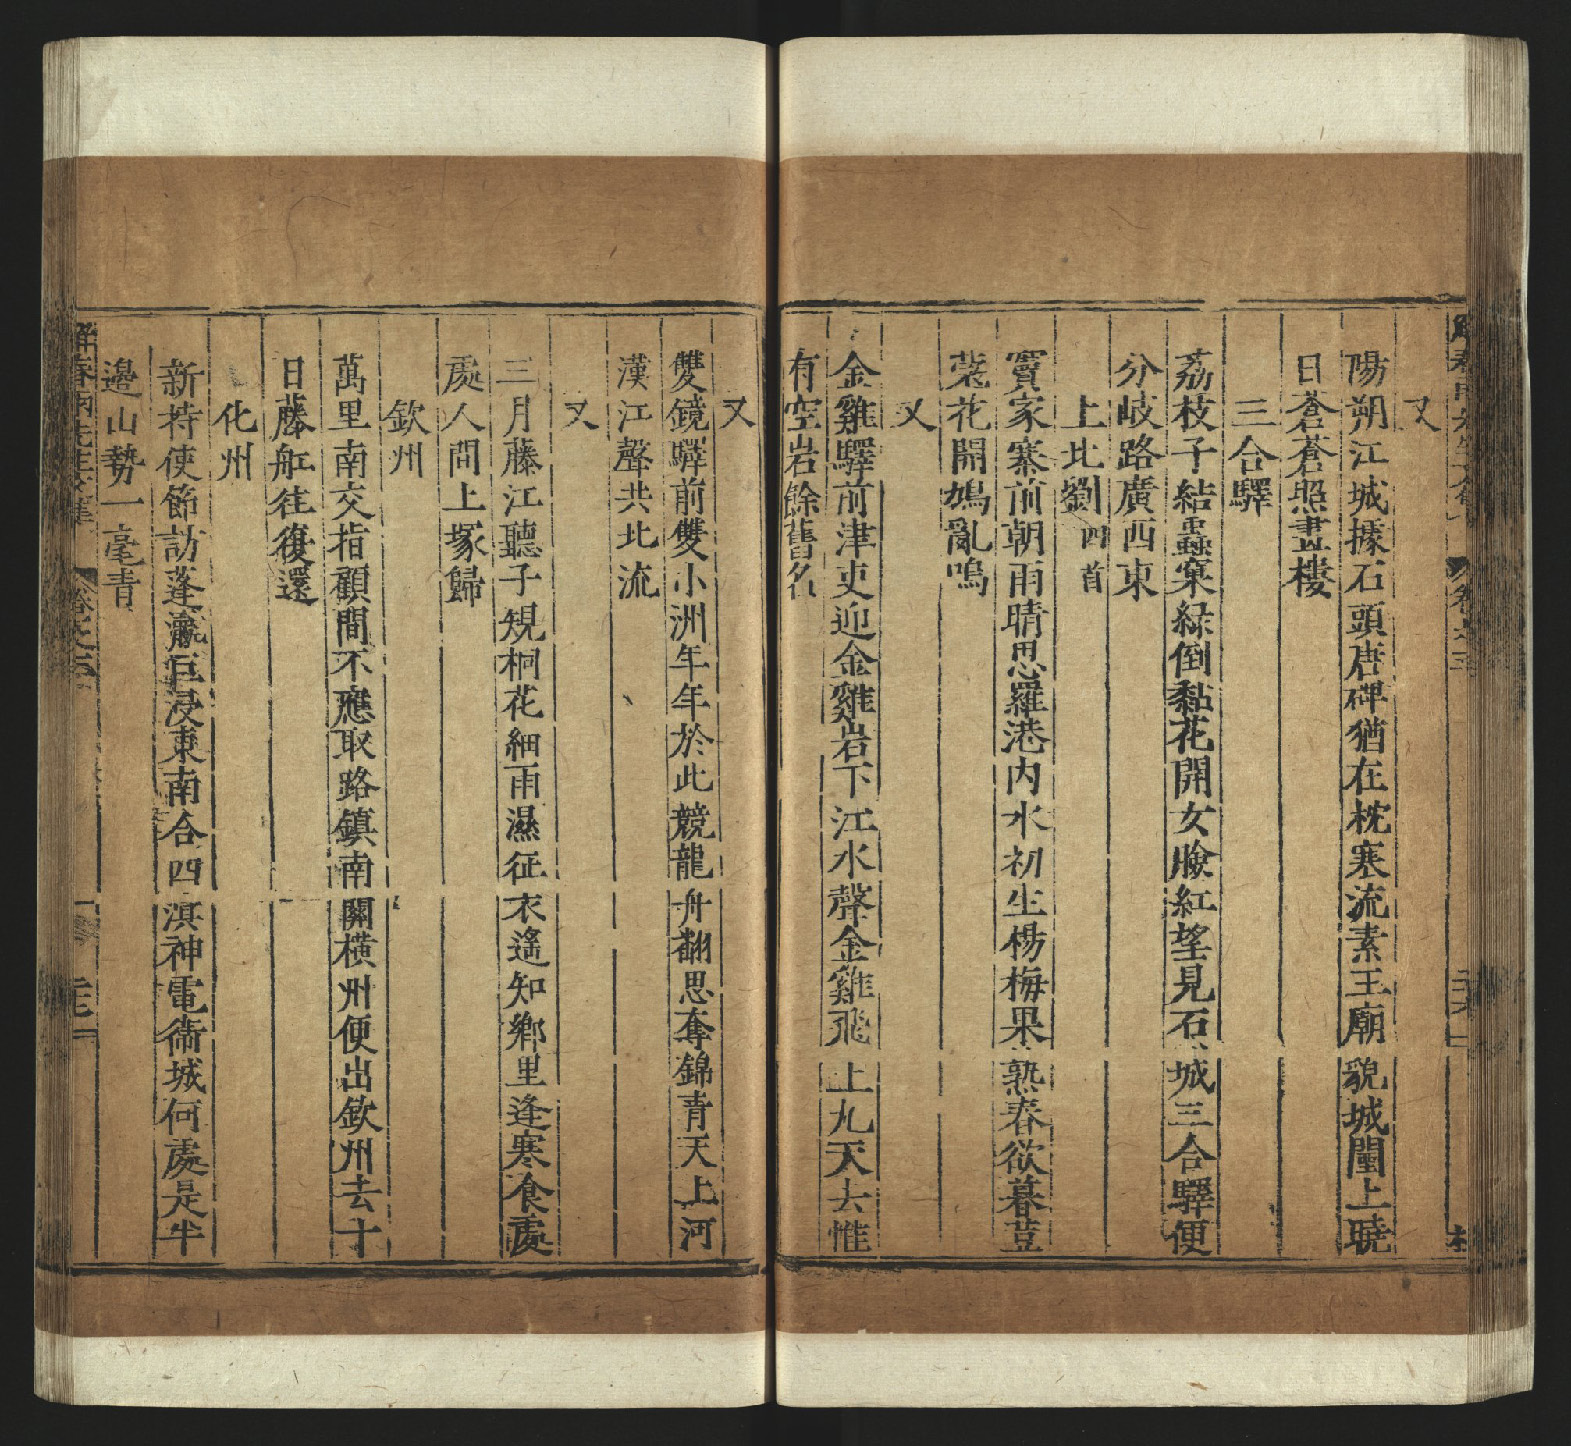 又
陽朔江城據石頭唐碑猶在枕寒流素王廟貌城闉上曉
日蒼蒼照畫樓
三合驛
荔枝子結蟲窠綠倒黏花開女臉紅望見石城三合驛便
分岐路廣西東
上北劉四首
竇家寨前朝雨晴思羅港內水初生楊梅果熟春欲暮荳
蔻花開鳩亂鳴
又
金雞驛前津吏迎金雞岩下江水聲金雞飛上九天去惟
有空岩餘舊名
又
雙鏡驛前雙小洲年年於此競龍舟翻思奪錦青天上河
漢江聲共北流
又
三月藤江聽子規桐花細雨濕征衣遙知鄉里逢寒食處
處人間上塚歸
欽州
萬里南交指顧間不應取路鎮南關橫州便出欽州去十
日藤舡往復還
化州
新持使節訪蓬瀛巨浸東南合四溟神電衛城何處是半
邊山勢一毫青
解春雨先生文集
卷之五